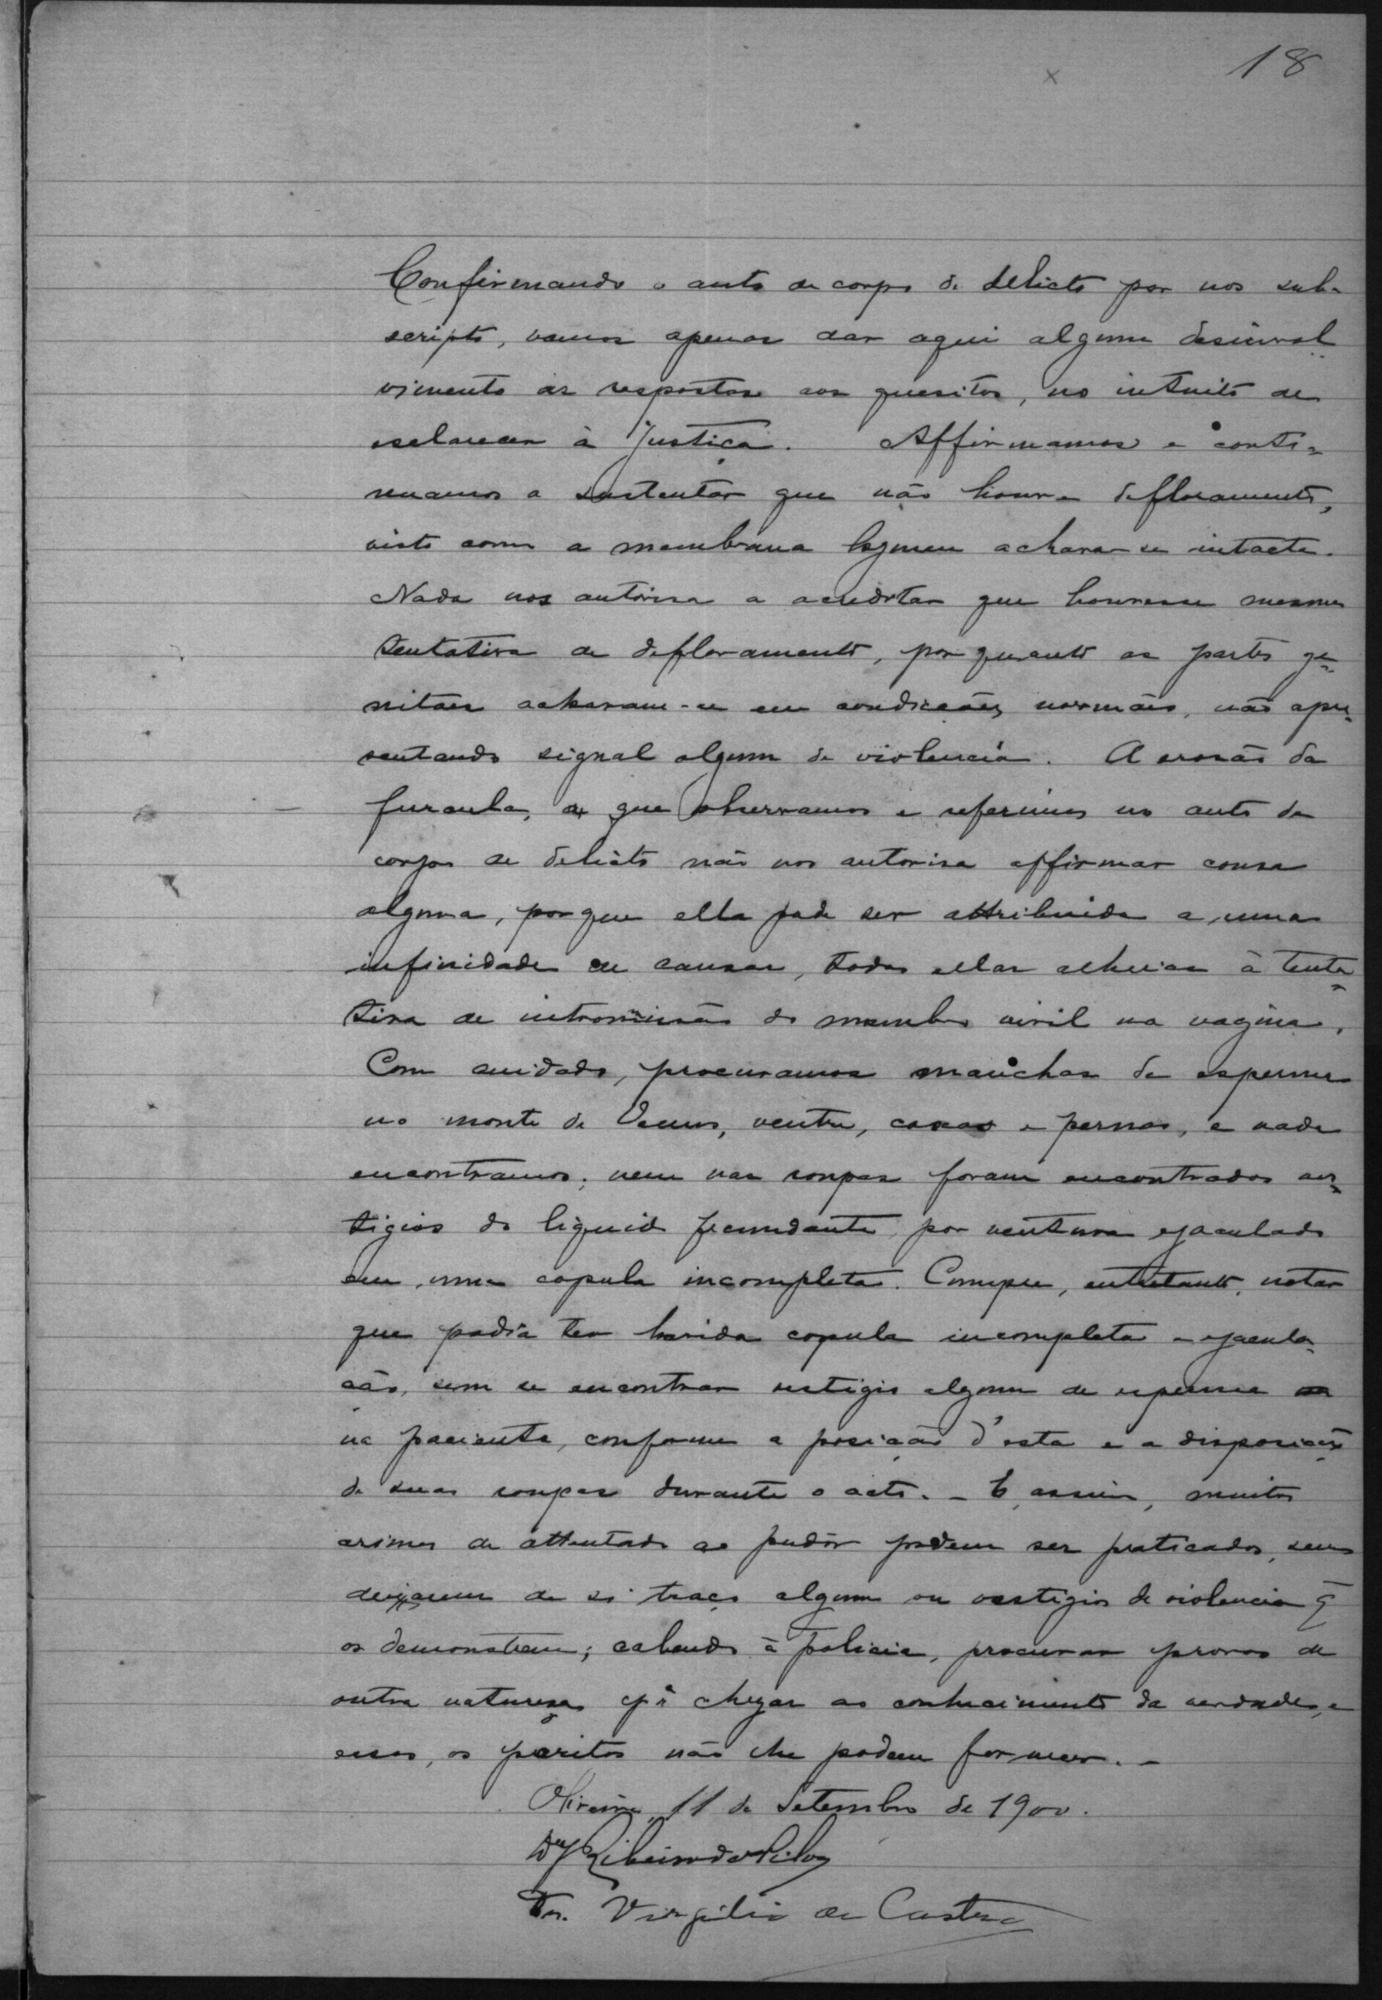 18
Confirmando o auto de corpo de delicto por nos sub-
scripto, vamos apenas dar aqui algum desinvol-
vimento as respostas aos quesitos, no intuito de
esclarecer à Justiça. Affirmamos e conti-
nuamos a sustentar que não houve defloramento,
visto como a membrana hymen achava-se intacta.
Nada nos autorisa a acreditar que houvesse mesmo
tentativa de defloramento, por quanto as partes ge-
nitaes acharam-se em condicções normáes, não apre-
sentando signal algum de violencia. A erosão da
furcula, a que observamos e referimos no auto de
corpo de delicto não nos autorisa affirmar cousa
alguma, porque ella pode ser attribuida a uma
infinidade de causas, todas ellas alheias à tenta-
tiva de intromissão do membro viril na vagina.
Com cuidado, procuramos manchas de esperma
no monte de Venus, ventre, coxas e pernas, e nada
encontramos; nem nas roupas foram encontrados ves-
tigios do liquido fecundante por ventura ejaculado
em uma copula incompleta. Cumpre, entretanto, notar
que podia ter havida copula incompleta e ejacula-
ção, sem se encontrar vestigio algum de esperma
na paciente, conforme a posição d'esta e a disposição
de suas roupas durante o acto. - E, assim, muitos
crimes de attentado ao pudôr podem ser praticados, sem
deixarem de si traço algum ou vestigio de violencia q̄
os demonstrem; cabendo à policia, procurar provas de
outra naturesa pª chegar ao conhecimento da verdade, e
essas, os peritos não lhe podem fornecer. -
Oliveira, 11 de Setembro de 1900.
Dr Ribeiro da Silva
Dr. Virgilio de Castro